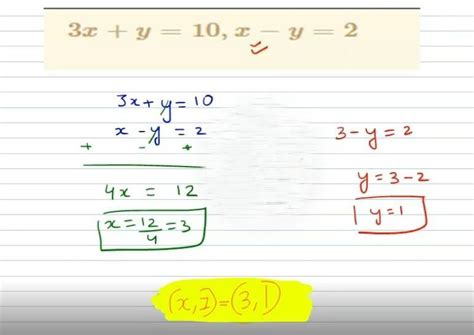 3x + y = 10, x − y = 2
3x + y = 10
x - y = 2
+ - +
4x = 12
x = 12/4 = 3
3 - y = 2
y = 3 - 2
y = 1
(x, y) = (3, 1)